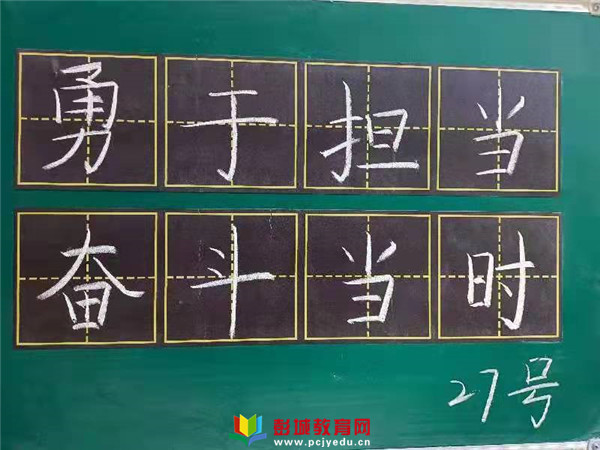 勇于担当
奋斗当时
27号
彭城教育网
www.pcjyedu.cn